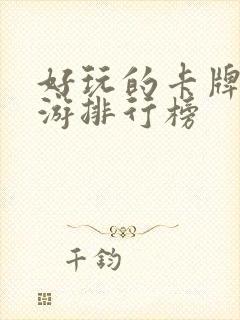 好玩的卡牌
游排行榜
千鈞